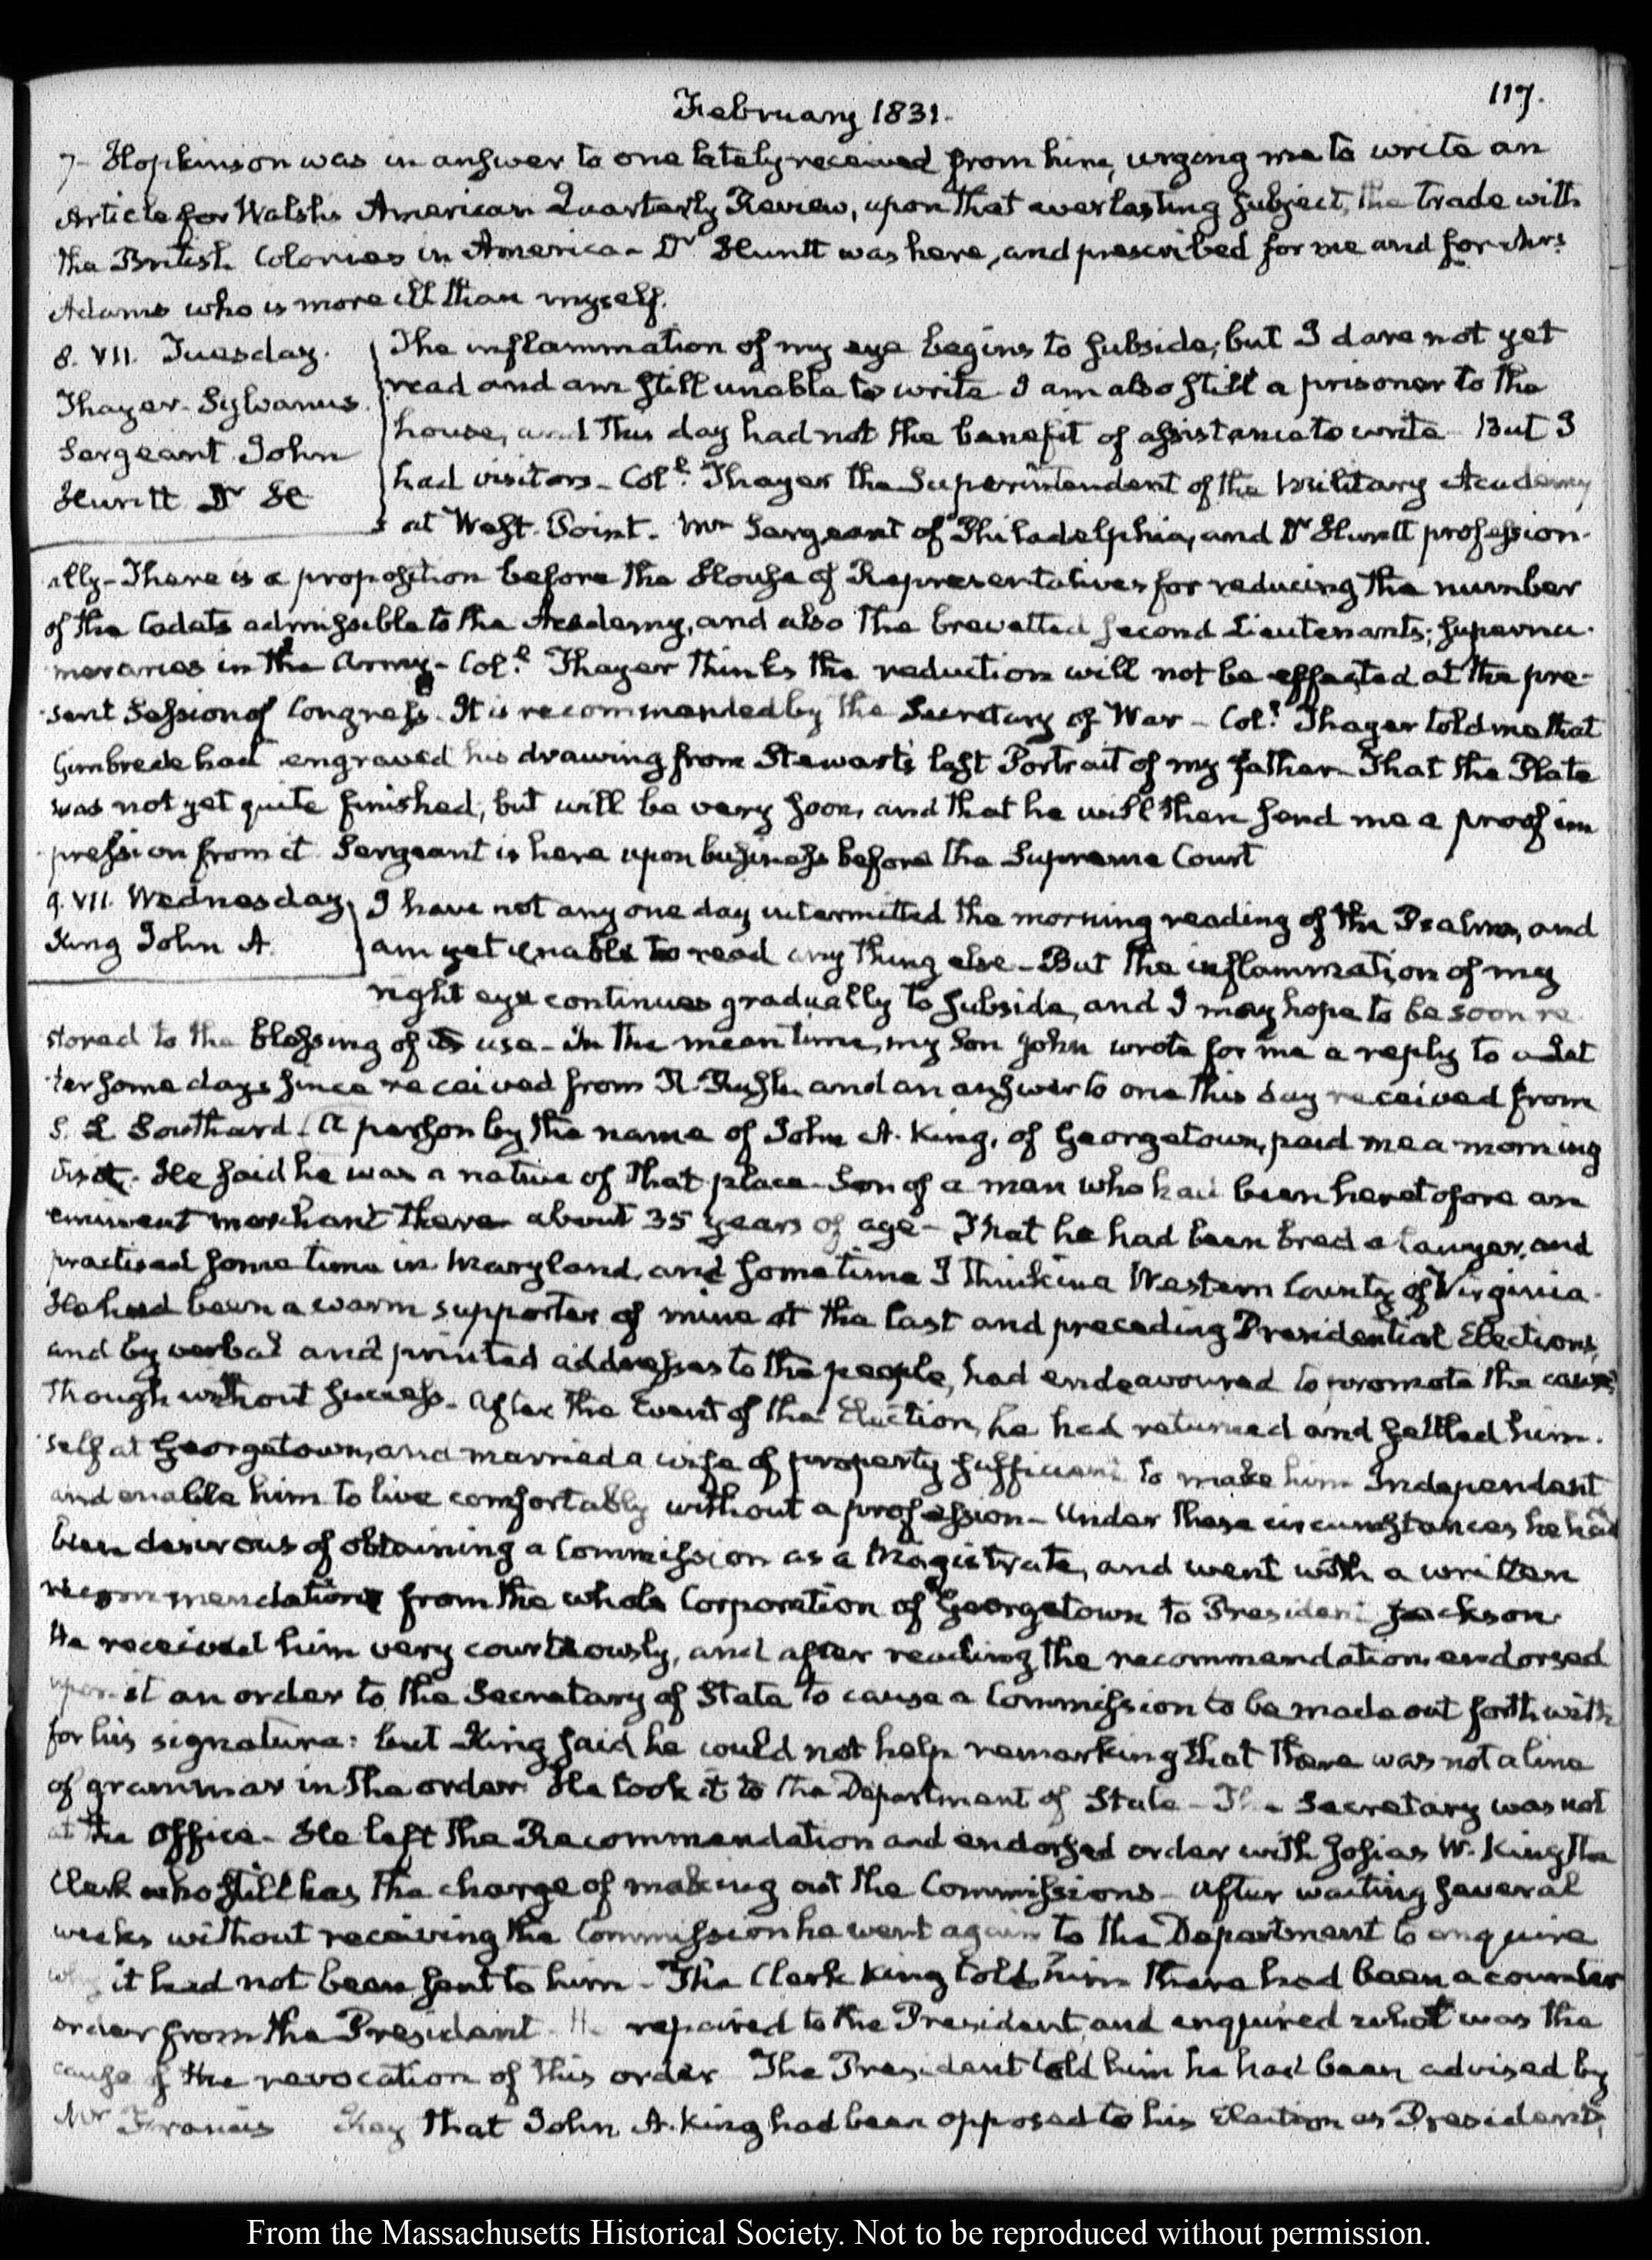 117.
February 1831.
7- Hopkinson was in answer to one lately received from him, urging me to write an
Article for Walsh's American Quarterly Review, upon that everlasting subject, the trade with
the British Colonies in America- Dr Huntt was here, and prescribed for me and for Mrs
Adams who is more ill than myself.
8. VII. Tuesday.
Thayer- Sylvanus
Sergeant John
Huntt Dr H
The inflammation of my eye begins to subside; but I dare not yet
read and am still unable to write- I am also still a prisoner to the
house, and this day had not the benefit of assistance to write- But I
had visitors- Coll. Thayer the Superintendent of the Military Academy
at West-Point- Mr Sergeant of Philadelphia, and Dr Huntt profession-
ally- There is a proposition before the House of Representatives for reducing the number
of the Cadets admissible to the Academy, and also the brevetted second Lieutenants; supernu-
meraries in the Army- Coll. Thayer thinks the reduction will not be effected at the pre-
sent Session of Congress. It is recommended by the Secretary of War- Coll. Thayer told me that
Gimbrede had engraved his drawing from Stewart's last Portrait of my father- That the Plate
was not yet quite finished, but will be very soon, and that he will then send me a proof im
pression from it Sergeant is here upon business before the Supreme Court
9. VII. Wednesday.
King John A.
I have not any one day intermitted the morning reading of the Psalms, and
am yet unable to read any thing else- But the inflammation of my
right eye continues gradually to subside, and I may hope to be soon re
stored to the blessing of its use- In the mean time, my Son John wrote for me a reply to a Let
ter some days since received from R. Rush and an answer to one this day received from
S. L Southard. A person by the name of John A. King, of Georgetown, paid me a morning
visit. He said he was a native of that place- Son of a man who had been heretofore an
eminent merchant there about 35 years of age- That he had been bred a lawyer, and
practised some time in Maryland, and sometime I think in a Western County of Virginia-
He had been a warm supporter of mine at the last and preceding Presidential Elections,
and by verbal and printed addresses to the people, had endeavoured to promote the cause,
though without success- After the Event of the Election, he had returned and settled him-
self at Georgetown, and married a wife of property sufficient to make him Independent
and enable him to live comfortably without a profession- Under these circumstances he had
been desirous of obtaining a Commission as a Magistrate, and went with a written
recommendation from the whole Corporation of Georgetown to President Jackson-
He received him very courteously, and after reading the recommendation, endorsed
upon it an order to the Secretary of State to cause a Commission to be made out forthwith
for his signature: but King said he could not help remarking that there was not a line
of grammar in the order- He took it to the Department of State- The Secretary was not
at the Office- He left the Recommendation and endorsed order with Josias W. King the
Clerk who still has the charge of making out the Commissions- After waiting several
weeks without receiving the Commission he went again to the Department to enquire
why it had not been sent to him- The Clerk King told him there had been a counter
order from the President- He repaired to the President, and enquired what was the
cause of the revocation of this order The President told him he had been advised by
Mr Francis Key that John A. King had been opposed to his Election as President,
From the Massachusetts Historical Society. Not to be reproduced without permission.